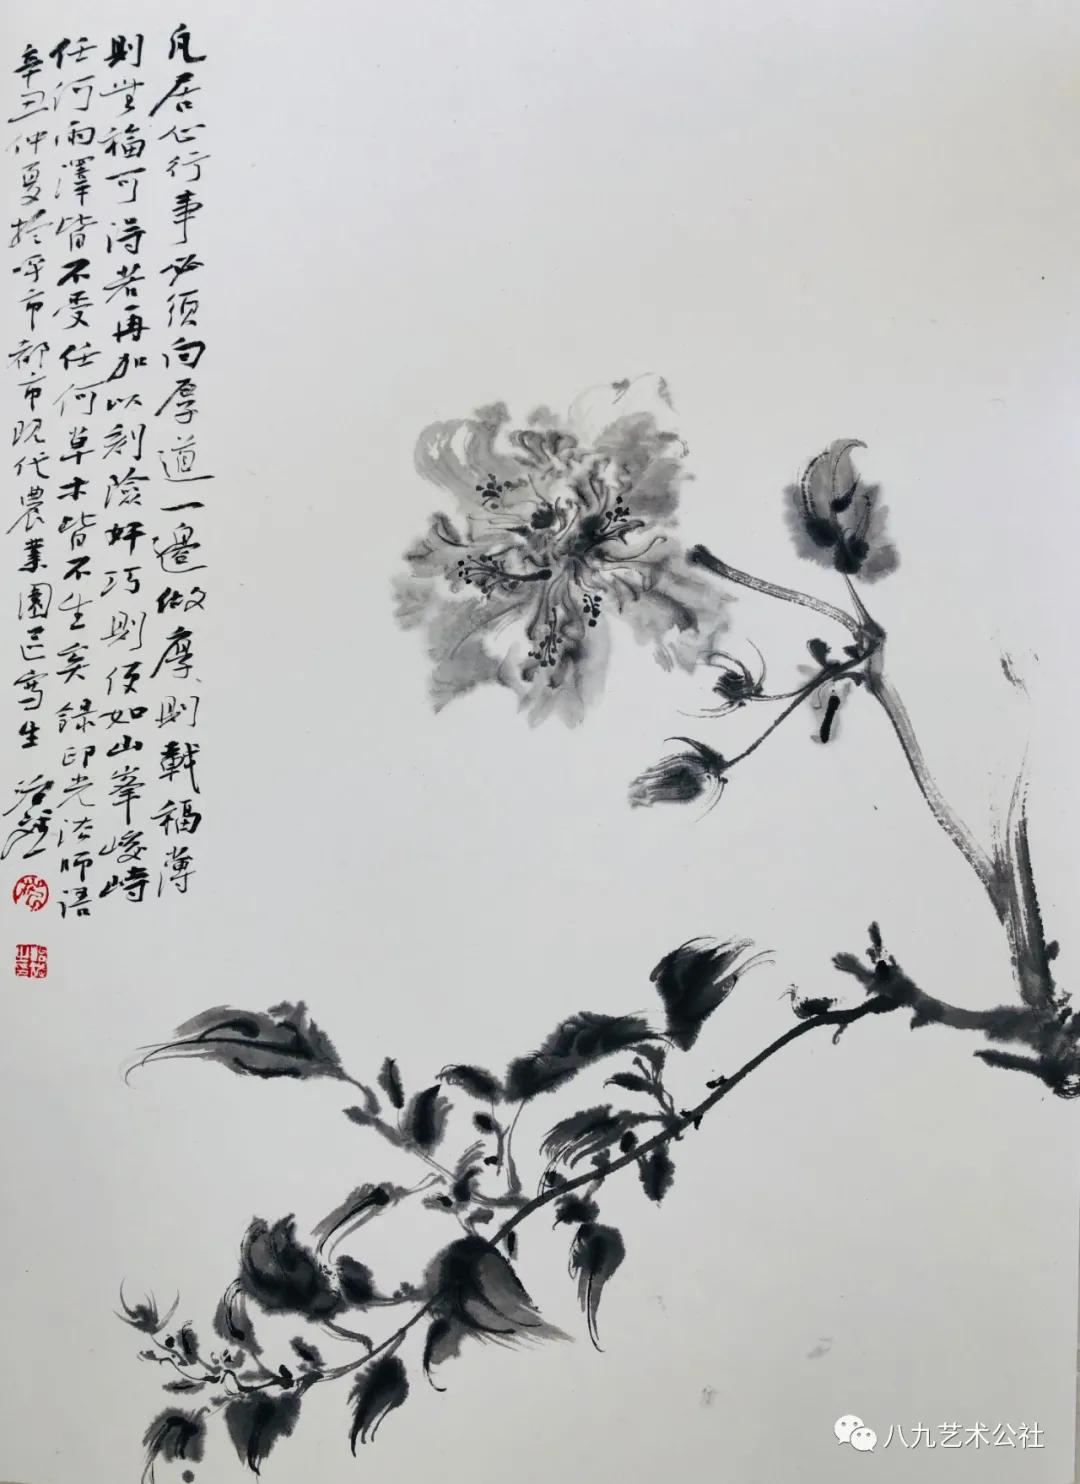 凡居心行事必须向厚道一邊做厚則載福薄
則無福可得若再加以刻險奸巧則便如山峯峻峙
任何雨澤皆不受任何草木皆不生矣 錄印光法師語
辛丑仲夏於呼市都市現代農業園區寫生
八九艺术公社